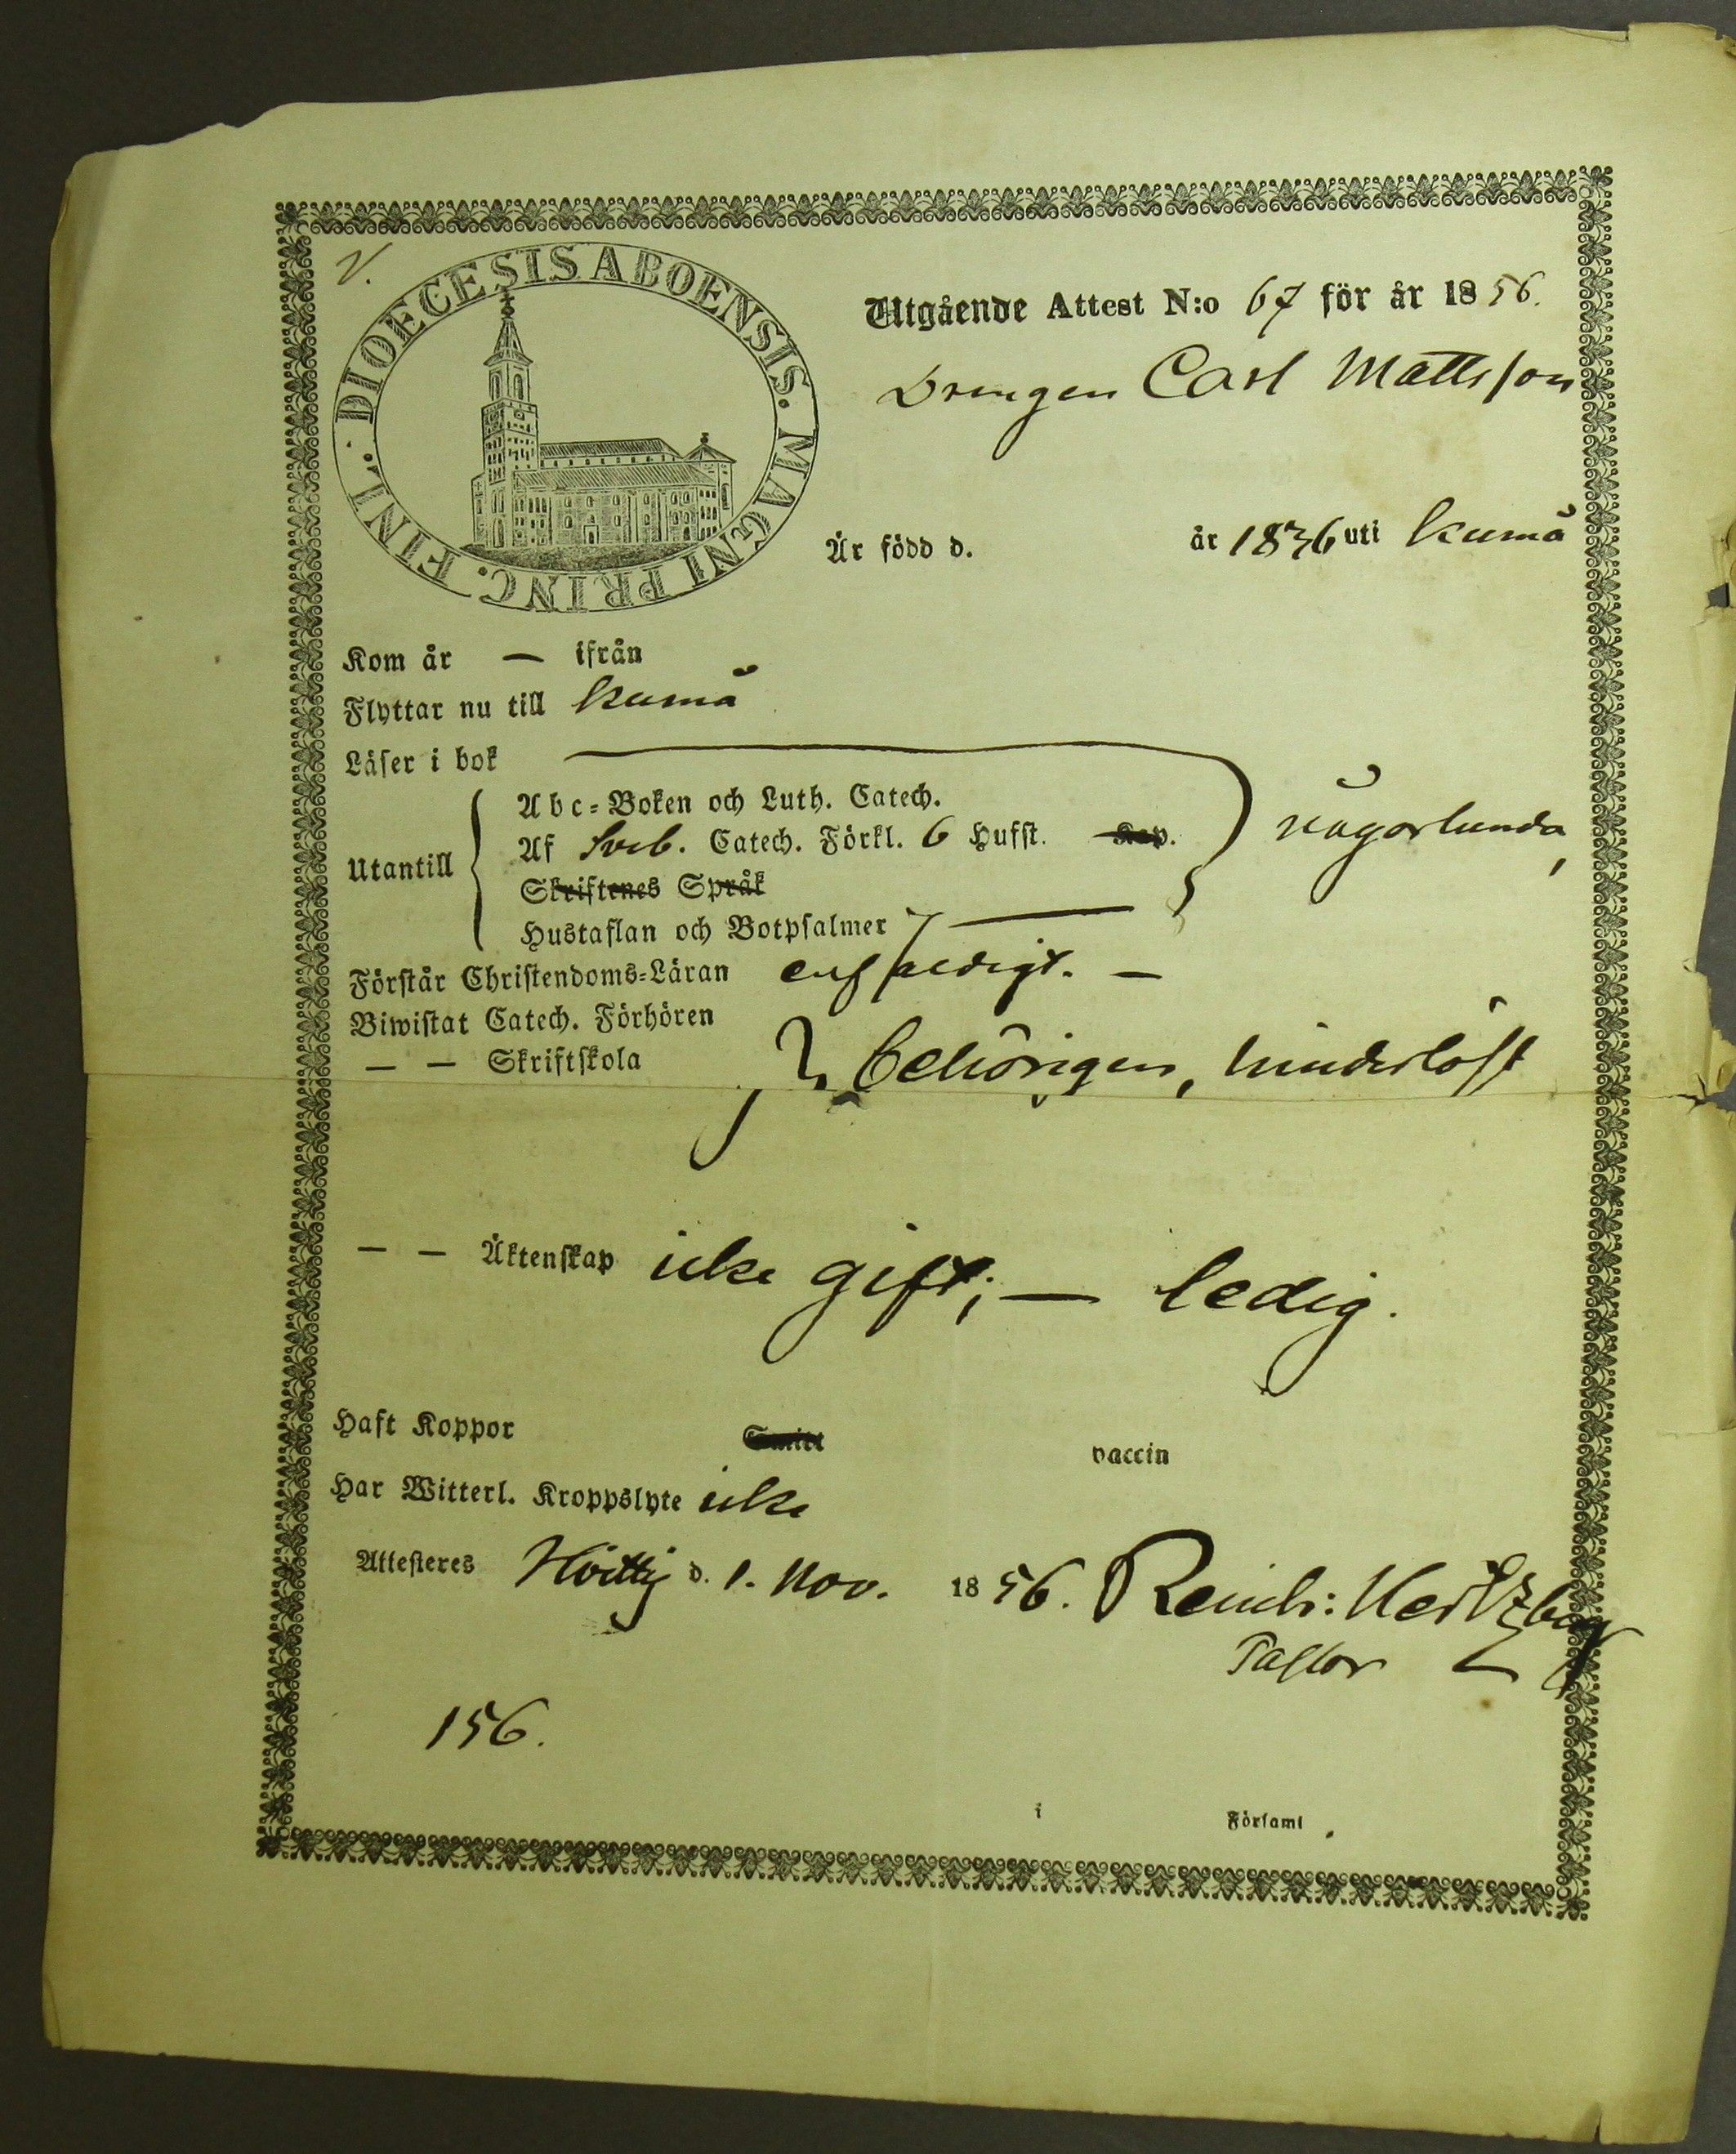 V.
DIOECESIS ABOENSIS. MAGNI PRINC. FINL.
Utgående Attest N:o 67 för år 1856.
Drengen Carl Mattsson
Är född d. år 1836 uti Kumå
Kom år — ifrån
Flyttar nu till Kumå
Läser i bok
Abc-Boken och Luth. Catech.
Utantill
Af Sveb. Catech. Förkl. 6 Hufst. Kap.
någorlunda
Skriftenes Språk
Hustaflan och Botpsalmer
Förstår Christendoms-Läran enfaldigt. —
Biwistat Catech. Förhören
— — Skriftskola
behörigen, hinderlöst
— — Äktenskap icke gift; — ledig.
Haft Koppor vaccin
Har Witterl. Kroppslyte icke
Attesteres d. 1. Nov. 1856. Reinh: Hertzberg
Pastor
156.
i Församl.